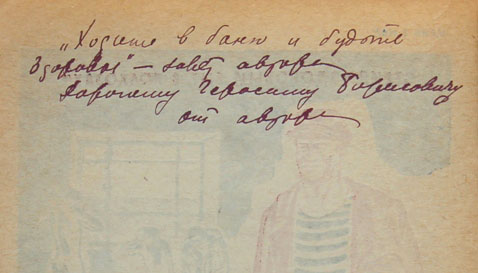 „Ходите в баню и будьте
здоровы" – завет автора
Дорогому Герасиму Борисовичу
от автора